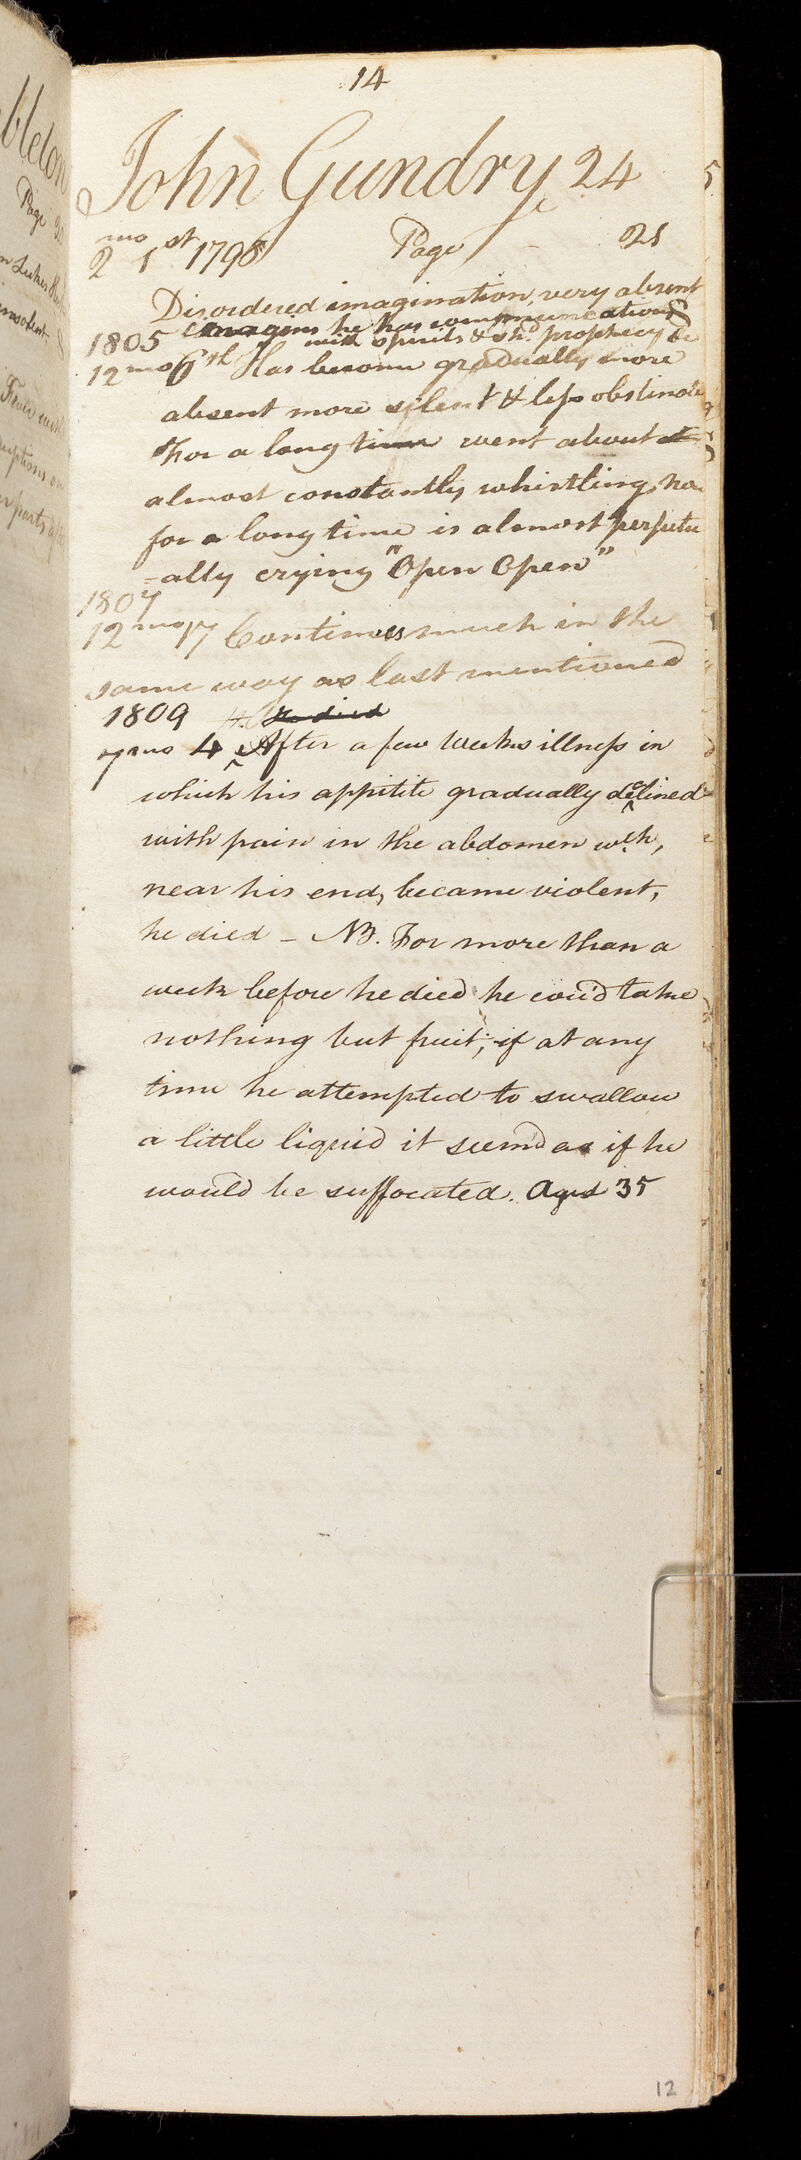 14
John Gundry 24
2 mo 1st 1798 Page 21
Disordered imagination, very absent
imagins he has communications
1805 with spirits & shd. prophecy &c
12mo 6th Has become gradually more
absent more silent & less obstinate
For a long time went about
almost constantly whistling, now
for a long time is almost perpetu
=ally crying "Open Open"
1807
12mo 17 Continues much in the
same way as last mentioned
1809 He died
7mo 4 After a few weeks illness in
which his appitite gradually declined
with pain in the abdomen wch,
near his end, became violent,
he died – NB. For more than a
week before he died he cou'd take
nothing but fruit; if at any
time he attempted to swallow
a little liquid it seem'd as if he
would be suffocated. Aged 35
12
bleton
Page
insolent.
Fever with
parts